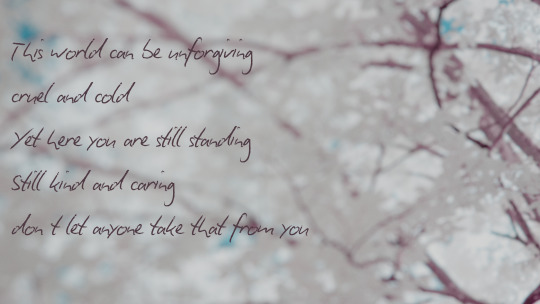 This world can be unforgiving
cruel and cold
Yet here you are still standing
Still kind and caring
don t let anyone take that from you